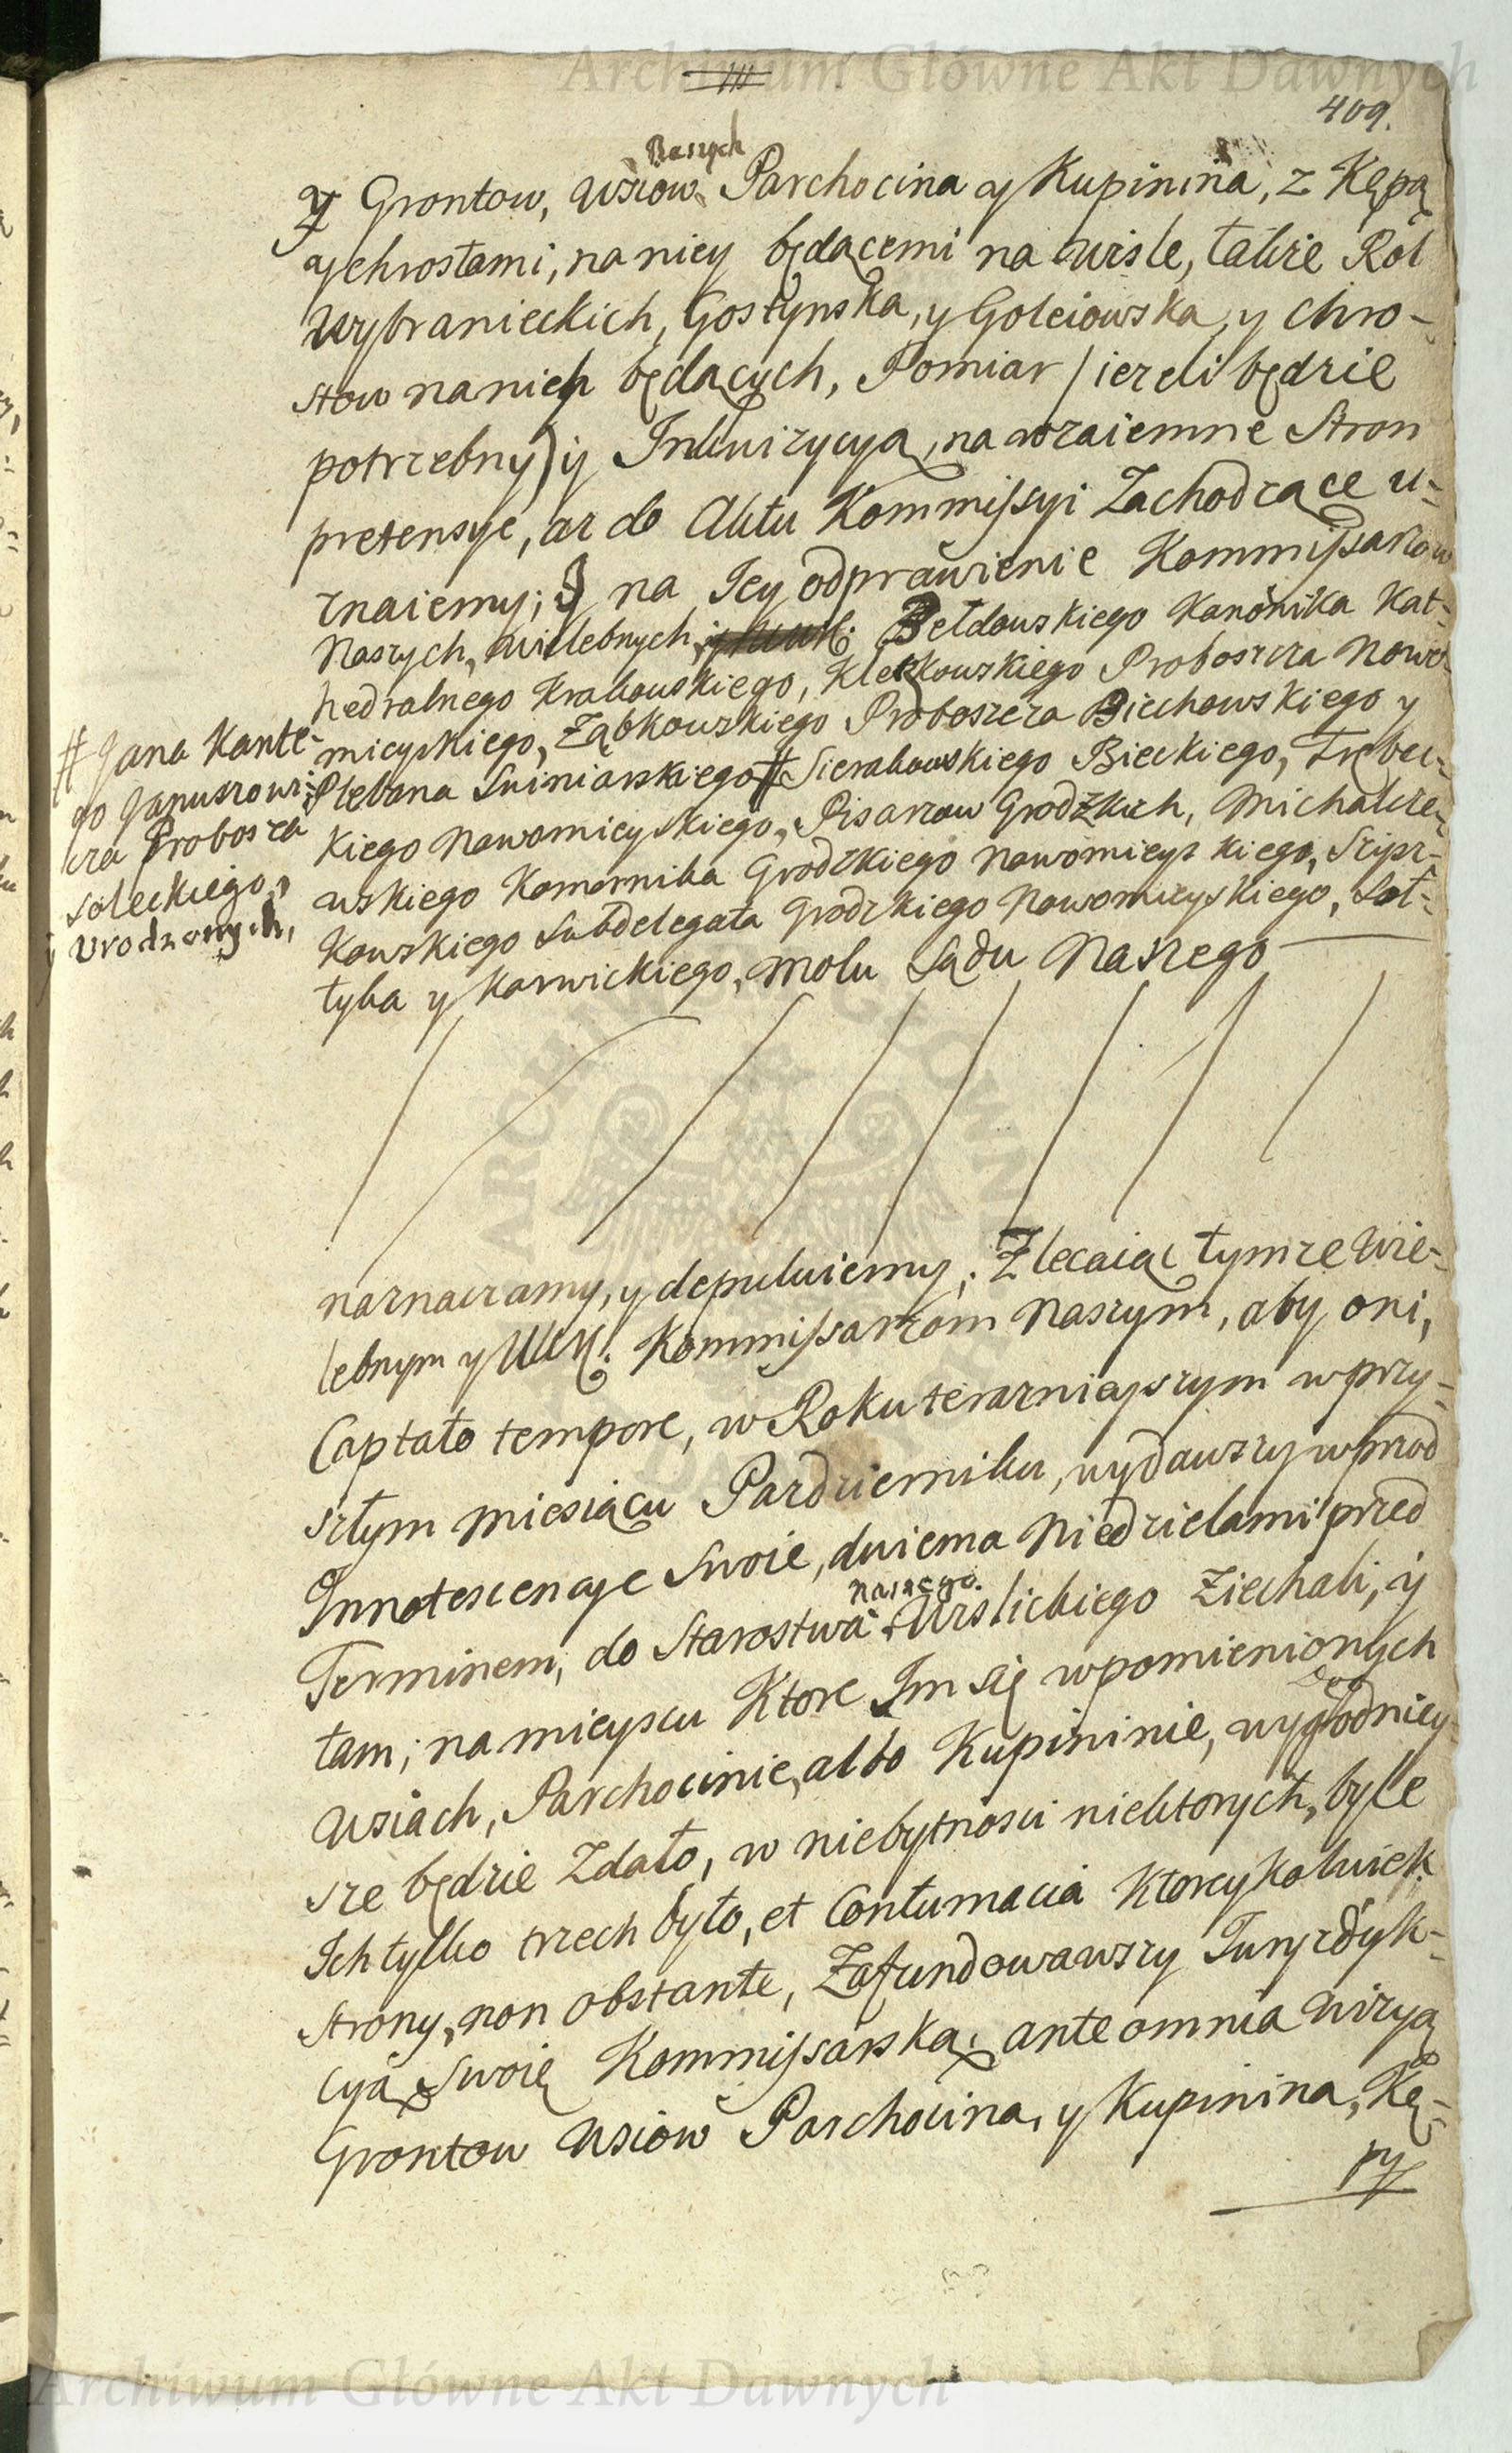 Archiwum Główne Akt Dawnych
409.
Naszych
y Grontow, Wsiow Parchocina y Kupinina, z Kępą
y chrostami, na niey będącemi na Wisle, także Rol
Wybranieckich, Gostynska, y Golciowska, y chro-
stow na nich będących, Pomiar /ieżeli będzie
potrzebny) y Inkwizycyą, na wzaiemne Stron
pretensye, aż do Aktu Kommissyi Zachodzące u-
znaiemy; y na Jey odprawienie Kommissarzow
Naszych, Wielebnych, Bełdowskiego Kanonika Kat-
hedralnego Krakowskiego, Kleczkowskiego Proboszcza Nowo-
mieyskiego, Ząbkowskiego Proboszcza Biechowskiego y
Plebana Swiniarskiego # Sierakowskiego Bieckiego, Trębec-
kiego Nowomieyskiego, Pisarzow Grodzkich, Michałcze-
wskiego Komornika Grodzkiego Nowomieyskiego, Szypr-
kowskiego Subdelegata Grodzkiego Nowomieyskiego, Soł-
tyka y Karwickiego, Molu Sądu Naszego
# Jana Kante-
go Januszowi-
cza Probosza
Soleckiego,
y Urodzonych,
naznaczamy, y deputuiemy; Zlecaiąc tymże Wie-
lebnym y UUr: Kommissarzom Naszym, aby oni,
Captato tempore, w Roku teraznieyszym w przy-
szłym Miesiącu Pazdzierniku, wydawszy wprzod
Innotescencye Swoie, dwiema Niedzielami przed
Terminem, do Starostwa Naszego Wislickiego Ziechali, y
tam, na mieyscu Ktore Im się w pomienionych
Wsiach, Parchocinie, albo Kupininie, wygodniey-
sze będzie Zdało, w niebytnosci niektorych, byle
Ich tylko trzech było, et Contumacia Ktoreykolwiek
Strony, non obstante, Zafundowawszy Juryzdyk-
cyą Swoię Kommissarską, ante omnia Wizyą
Grontow Wsiow Parchocina, y Kupinina, Kę-
py
Archiwum Główne Akt Dawnych